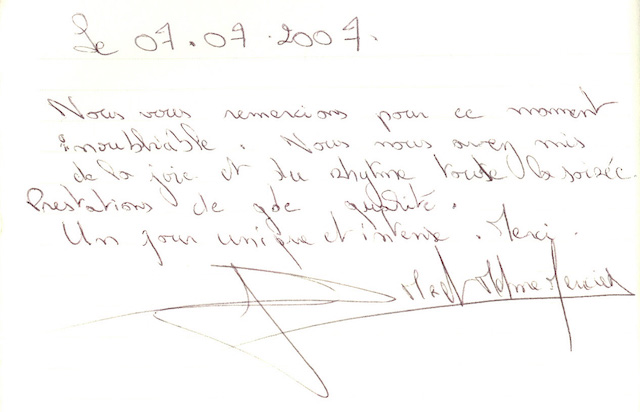 Le 07.07.2007.
Nous vous remercions pour ce moment
inoubliable. Nous nous avez mis
de la joie et du rhytme toute la soirée.
Prestations de gde qualité.
Un jour unique et intense. Merci.
Mr et Mme Mercier